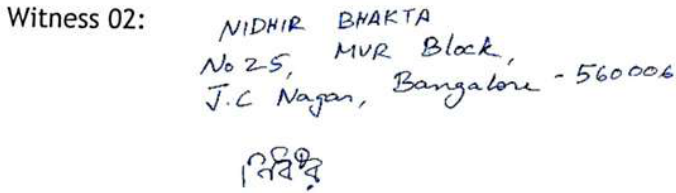 Witness 02: NIDHIR BHAKTA
No 25, MVR Block,
J.C Nagar, Bangalore - 560006